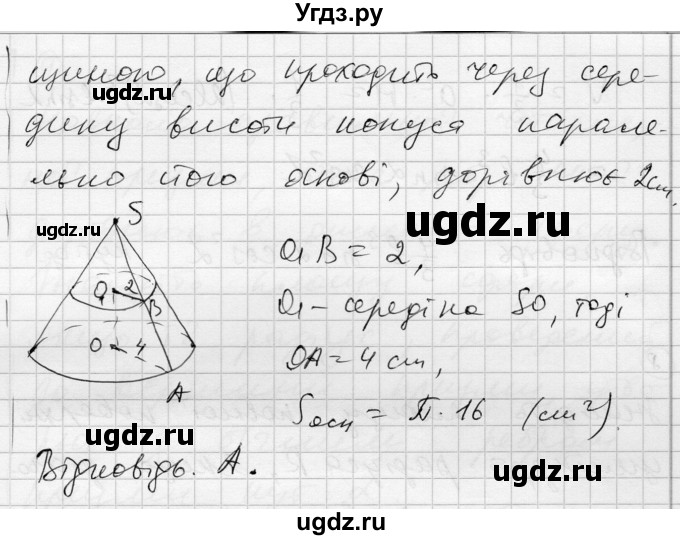 Угдз.ру
щиною, що проходить через сере-
ugdz.ru
ugdz.ru
дину висоти конуса парале-
льно його основі, дорівнює 2 см.
ugdz.ru
ugdz.ru
S
O₁ 2 B
O 4
A
O₁B = 2,
O₁ - середіна SO, тоді
OA = 4 см,
Sосн = π · 16 (см²).
ugdz.ru
ugdz.ru
Відповідь. А.
ugdz.ru
ugdz.ru